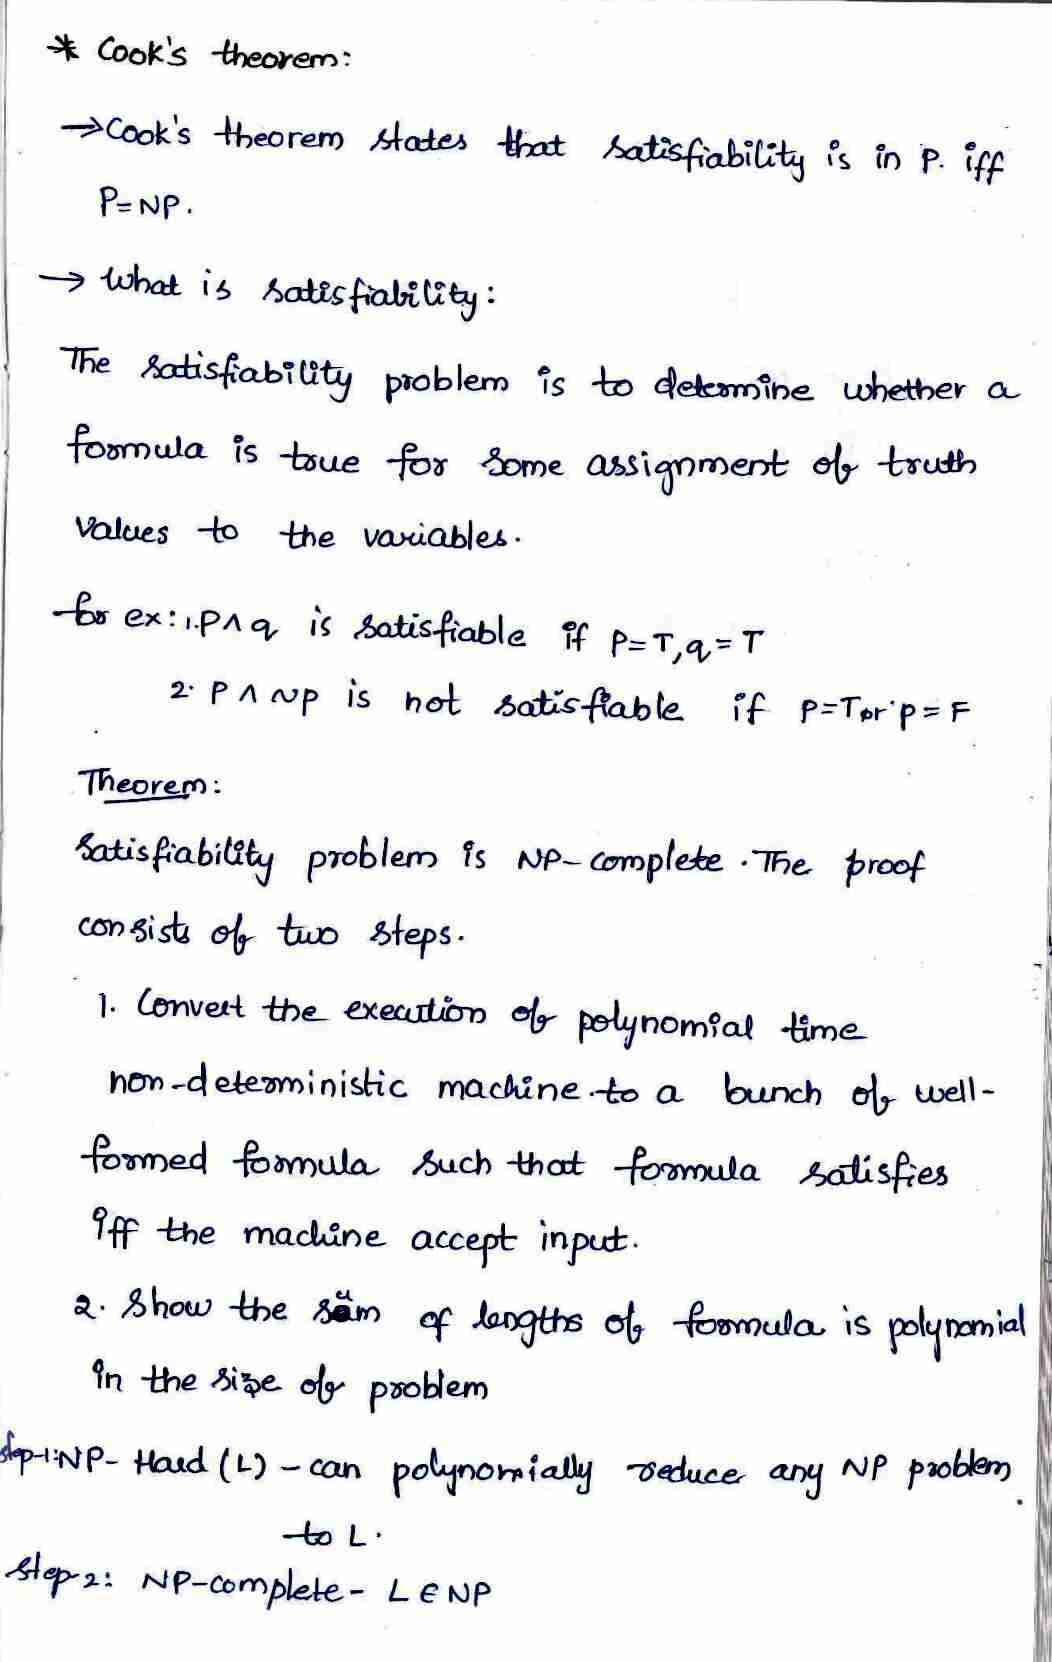 * Cook's theorem:
→ Cook's theorem states that satisfiability is in P. iff
P=NP.
→ What is satisfiability:
The satisfiability problem is to determine whether a
formula is true for some assignment of truth
values to the variables.
for ex: 1. P ∧ q is satisfiable if P=T, q=T
2. P ∧ ~p is not satisfiable if P=T or p=F
Theorem:
Satisfiability problem is NP-complete. The proof
consists of two steps.
1. Convert the execution of polynomial time
non-deterministic machine to a bunch of well-
formed formula such that formula satisfies
iff the machine accept input.
2. Show the sum of lengths of formula is polynomial
in the size of problem
step-1: NP-Hard (L) - can polynomially reduce any NP problem
to L.
step 2: NP-complete - L ∈ NP